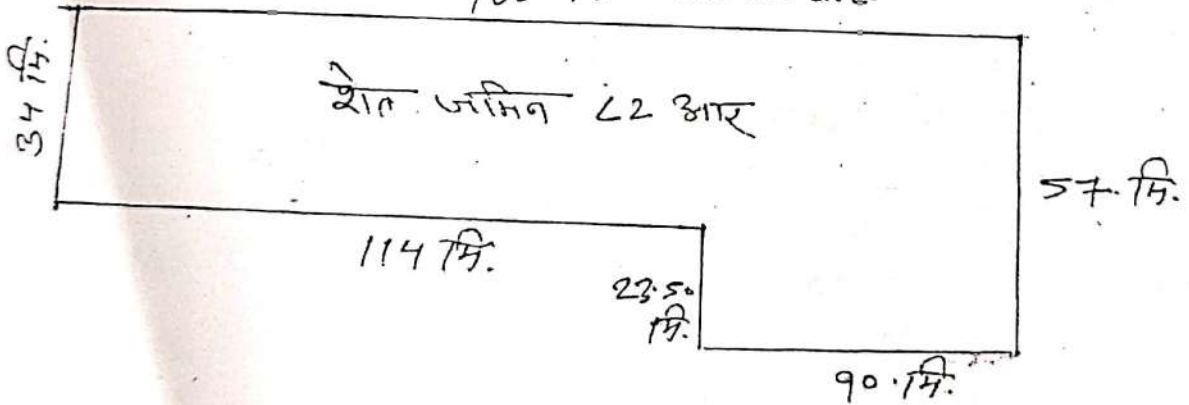 34 मि.
शेत जमिन ८२ आर
57. मि.
114 मि.
23.50
मि.
90. मि.